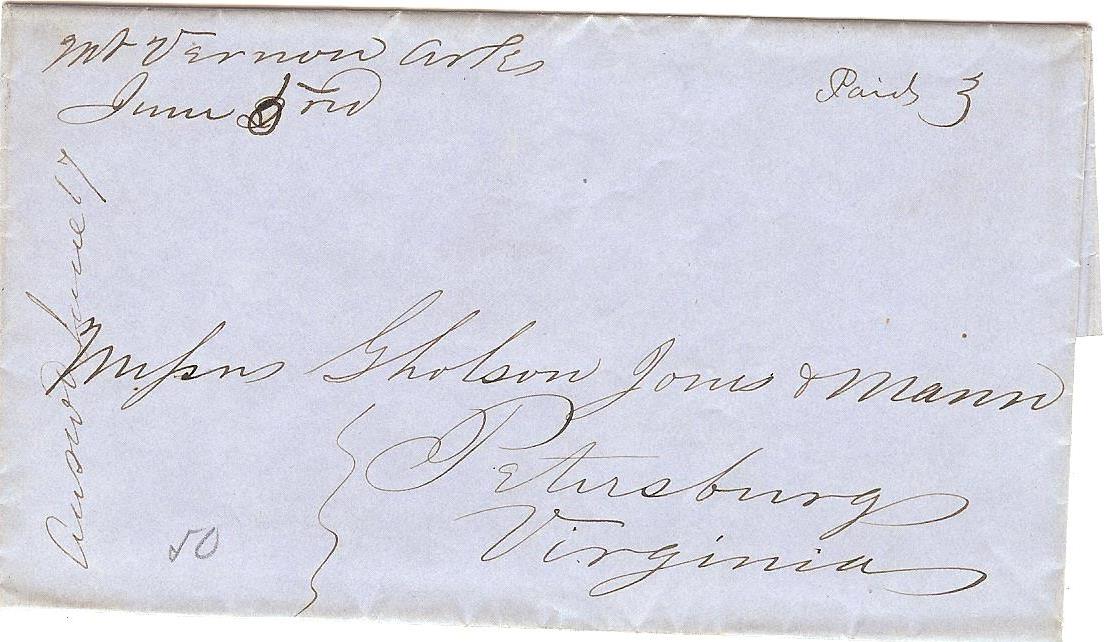 Mt Vernon Arks
June 3rd
Paid 3
Answd June 17
Messrs Gholson Jones & Mann
Petersburg
Virginia
50